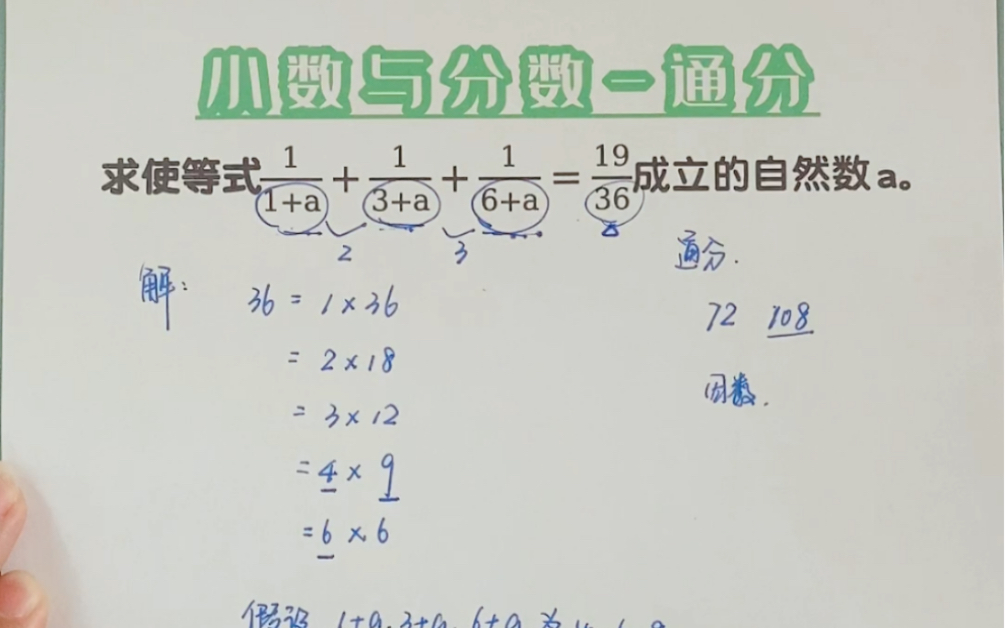 小数与分数-通分
求使等式1/(1+a)+1/(3+a)+1/(6+a)=19/36成立的自然数a。
2 3
通分.
解: 36 = 1×36
72 108
= 2×18
= 3×12
因数.
= 4×9
= 6×6
假设 1+a, 3+a, 6+a 为